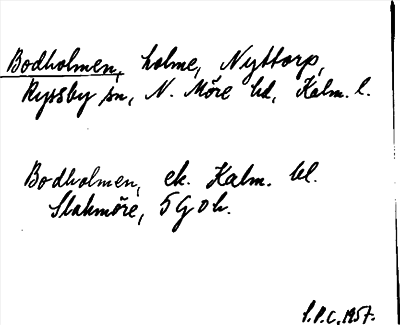 Bodholmen, holme, Nyttorp,
Ryssby sn, N. Möre hd, Kalm. l.
Bodholmen, ek. Kalm. bl.
Slakmöre, 5 G 0 h.
S.P.C. 1957.